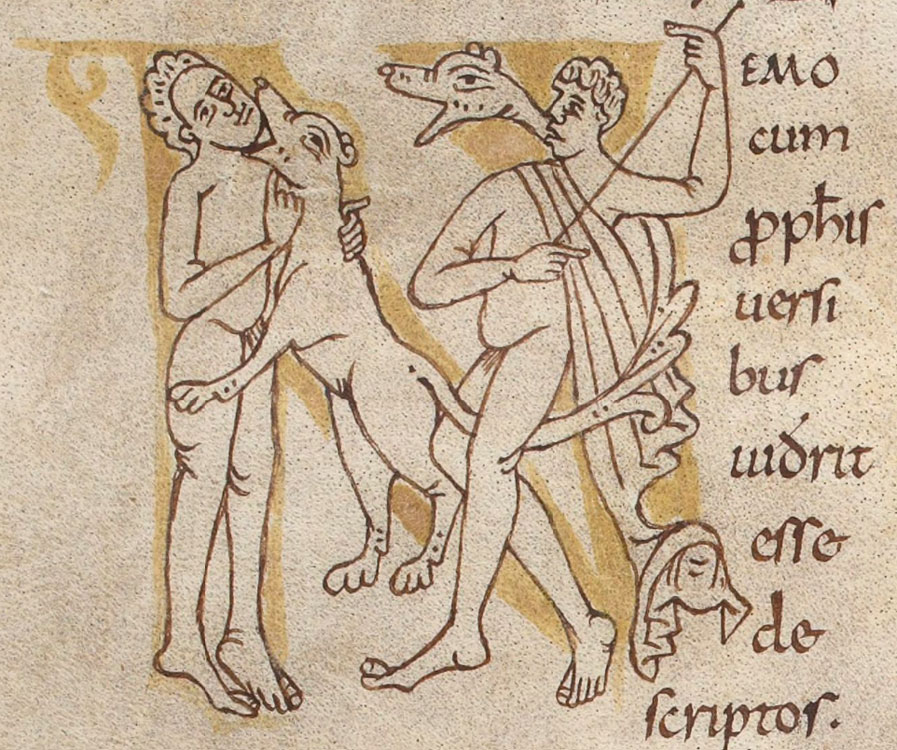 NEMO
cum
ꝓpħis
uersi
bus
uid̄rit
esse
de
scriptos.